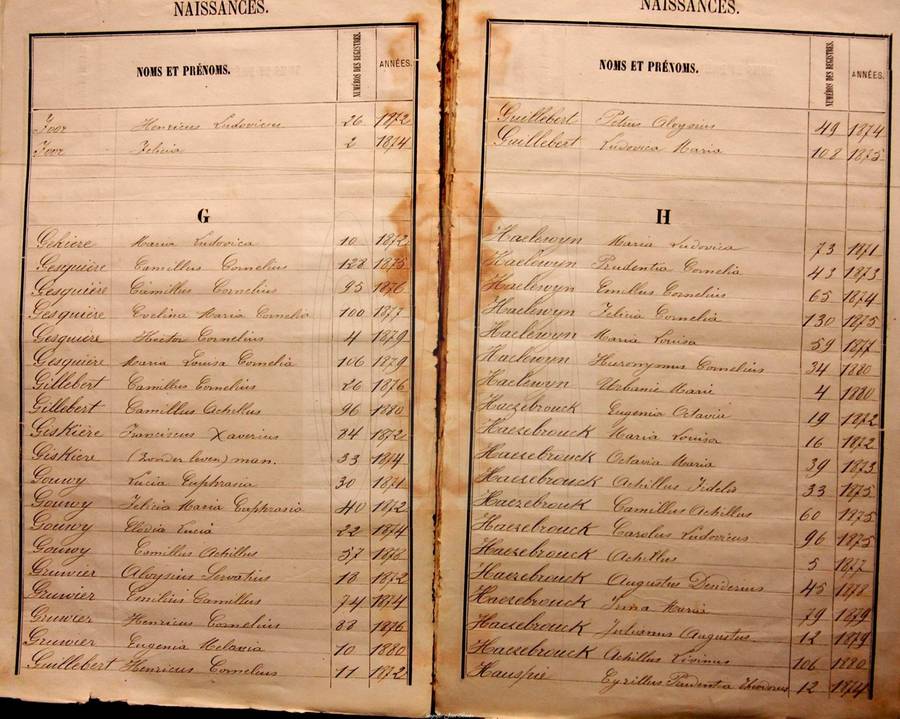 NAISSANCES.
NOMS ET PRÉNOMS. NUMÉROS DES REGISTRES. ANNÉES.
Henricus Ludovicus 26 1872
Felicia 2 1874
G
Gehiere Maria Ludovica 10 1872
Gesquière Camillus Cornelius 128 1875
Gesquière Camillus Cornelius 95 1876
Gesquière Evelina Maria Cornelia 100 1877
Gesquière Hector Cornelius 4 1879
Gesquière Maria Louisa Cornelia 106 1879
Gillebert Camillus Cornelius 26 1876
Gillebert Camillus Achillus 96 1880
Giskière Franciscus Xaverius 84 1872
Giskière (Zonder leven) man. 33 1874
Gouwy Lucia Euphrasia 30 1871
Gouwy Felicia Maria Euphrasia 40 1872
Gouwy Elodia Lucia 22 1874
Gouwy Camillus Achillus 57 1878
Gruwier Aloysius Servatius 18 1872
Gruwier Emilius Camillus 74 1874
Gruwier Henricus Cornelius 88 1876
Gruwier Eugenia Melania 10 1880
Guillebert Henricus Cornelius 11 1872
NAISSANCES.
NOMS ET PRÉNOMS. NUMÉROS DES REGISTRES. ANNÉES.
Guillebert Petrus Aloysius 49 1874
Guillebert Ludovica Maria 108 1875
H
Haelewyn Maria Ludovica 73 1871
Haelewyn Prudentia Cornelia 43 1873
Haelewyn Emillus Cornelius 65 1874
Haelewyn Felicia Cornelia 130 1875
Haelewyn Maria Louisa 59 1877
Haelewyn Hieronymus Cornelius 34 1880
Haelewyn Urbanie Marie 4 1880
Haezebrouck Eugenia Octavie 19 1872
Haezebrouck Maria Louisa 16 1872
Haezebrouck Octavia Maria 39 1873
Haezebrouck Achillus Fidelis 33 1875
Haezebrouck Camillus Achillus 60 1875
Haezebrouck Carolus Ludovicus 96 1875
Haezebrouck Achillus 5 1877
Haezebrouck Augustus Desiderius 45 1878
Haezebrouck Irma Maria 79 1879
Haezebrouck Julianus Augustus 12 1879
Haezebrouck Achillus Livinus 106 1880
Hauspie Cyrillus Prudentia Theodorus 12 1874